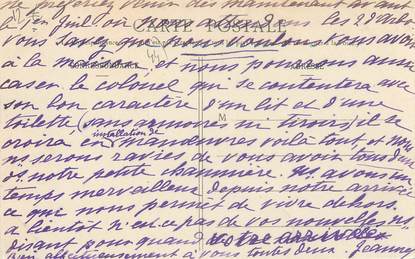 ne préférez venir dès maintenant avant
CARTE POSTALE
vous savez que nous voulons vous avoir
à la maison, et nous pouvons aussi
CORRESPONDANCE
caser le colonel qui se contentera avec
son bon caractère d'un lit et d'une
M
toilette (sans armoires ni tiroirs) il se
croira en installation de manœuvres voilà tout, et nous
ns. serons ravies de vous avoir tous deux
ds. notre petite chaumière. Ns. avons un
temps merveilleux depuis notre arrivée
ce qui nous permet de vivre dehors.
à bientôt n'est-ce pas de vos nouvelles ns.
disant pour quand votre arrivée
Bien affectueusement à vous tous deux Jeanne